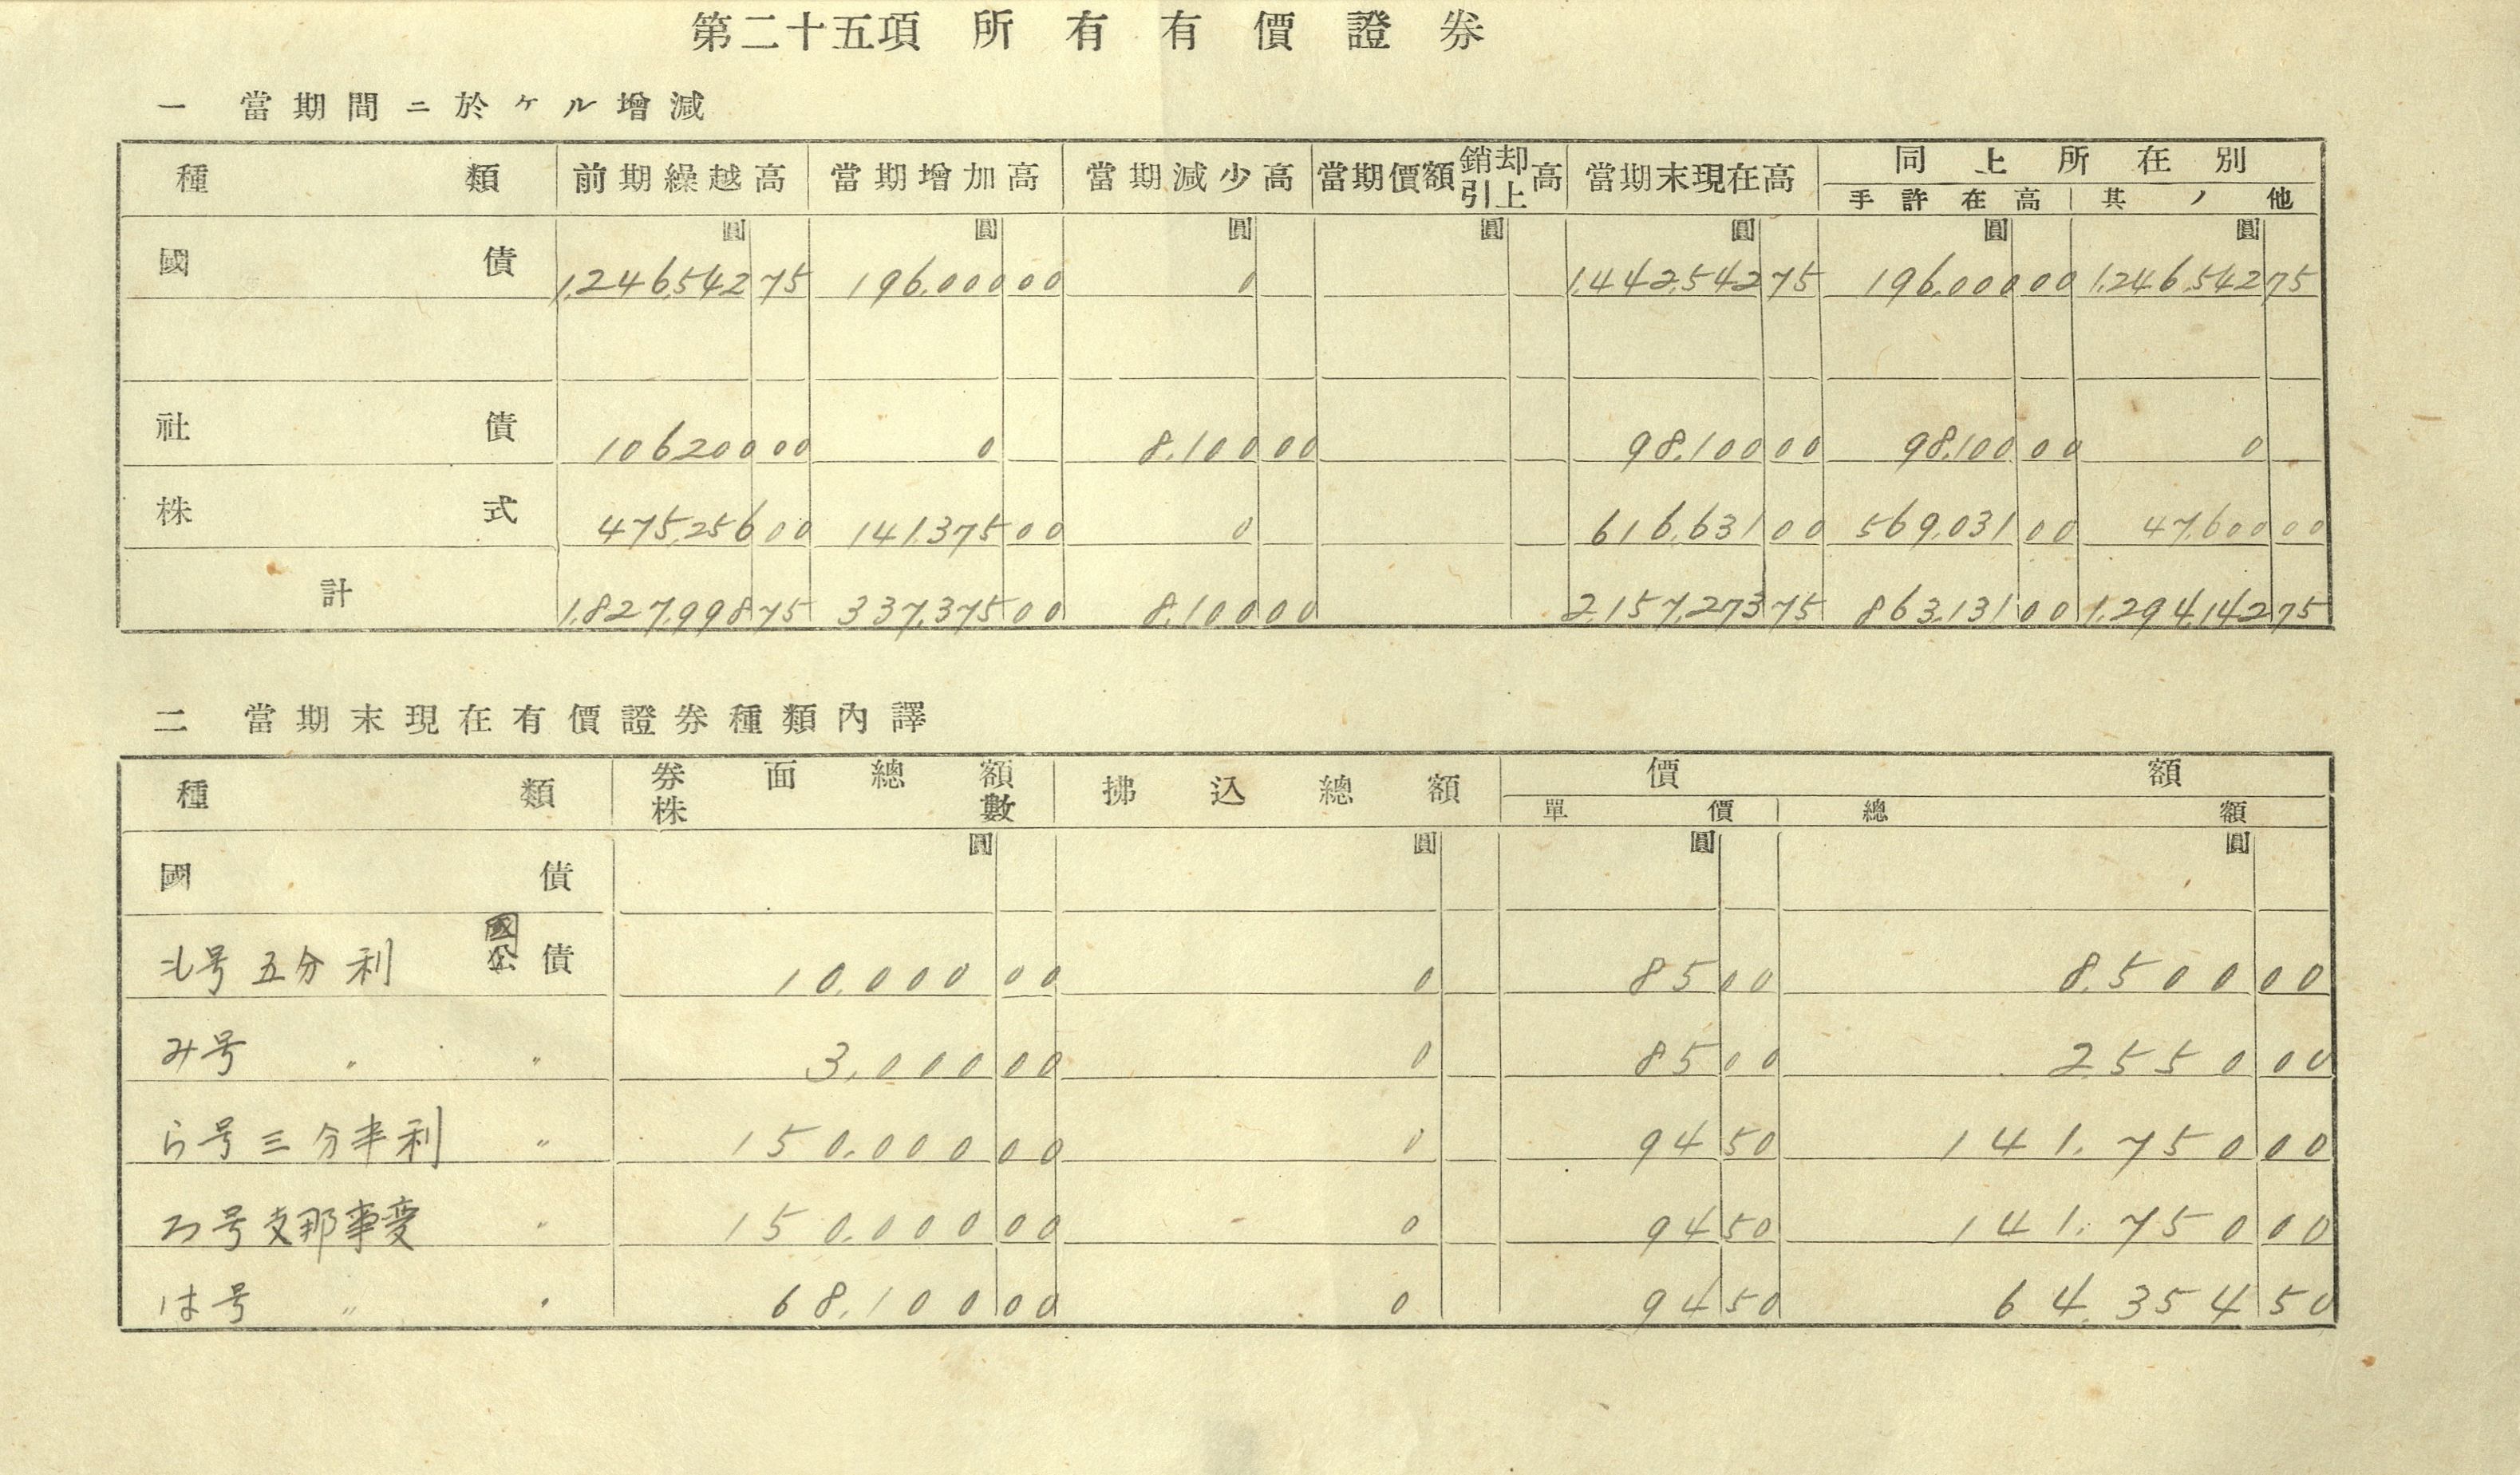 第二十五項 所有有價證券
一 當期間ニ於ケル增減
種類 前期繰越高 當期增加高 當期減少高 當期價額銷却引上高 當期末現在高 同上所在別
手許在高 其ノ他
圓 圓 圓 圓 圓 圓 圓
國債 1,246,542 75 196,000 00 0 1,442,542 75 196,000 00 1,246,542 75
社債 106200 00 0 8,100 00 98,100 00 98,100 00 0
株式 475,256 00 141,375 00 0 616,631 00 569,031 00 47,600 00
計 1,827,998 75 337,375 00 8,100 00 2,157,273 75 863,131 00 1,294,142 75
二 當期末現在有價證券種類內譯
種類 券面總額 株數 拂込總額 價額
單價 總額
圓 圓 圓 圓
國債
國
號五分利 公債 10,000 00 0 85 00 8,500 00
み号 〃 〃 3,000 00 0 85 00 2550 00
ら号三分半利 〃 150,000 00 0 94 50 141,750 00
ろ号支那事変 〃 150,000 00 0 94 50 141,750 00
は号 〃 〃 68,100 00 0 94 50 64,354 50